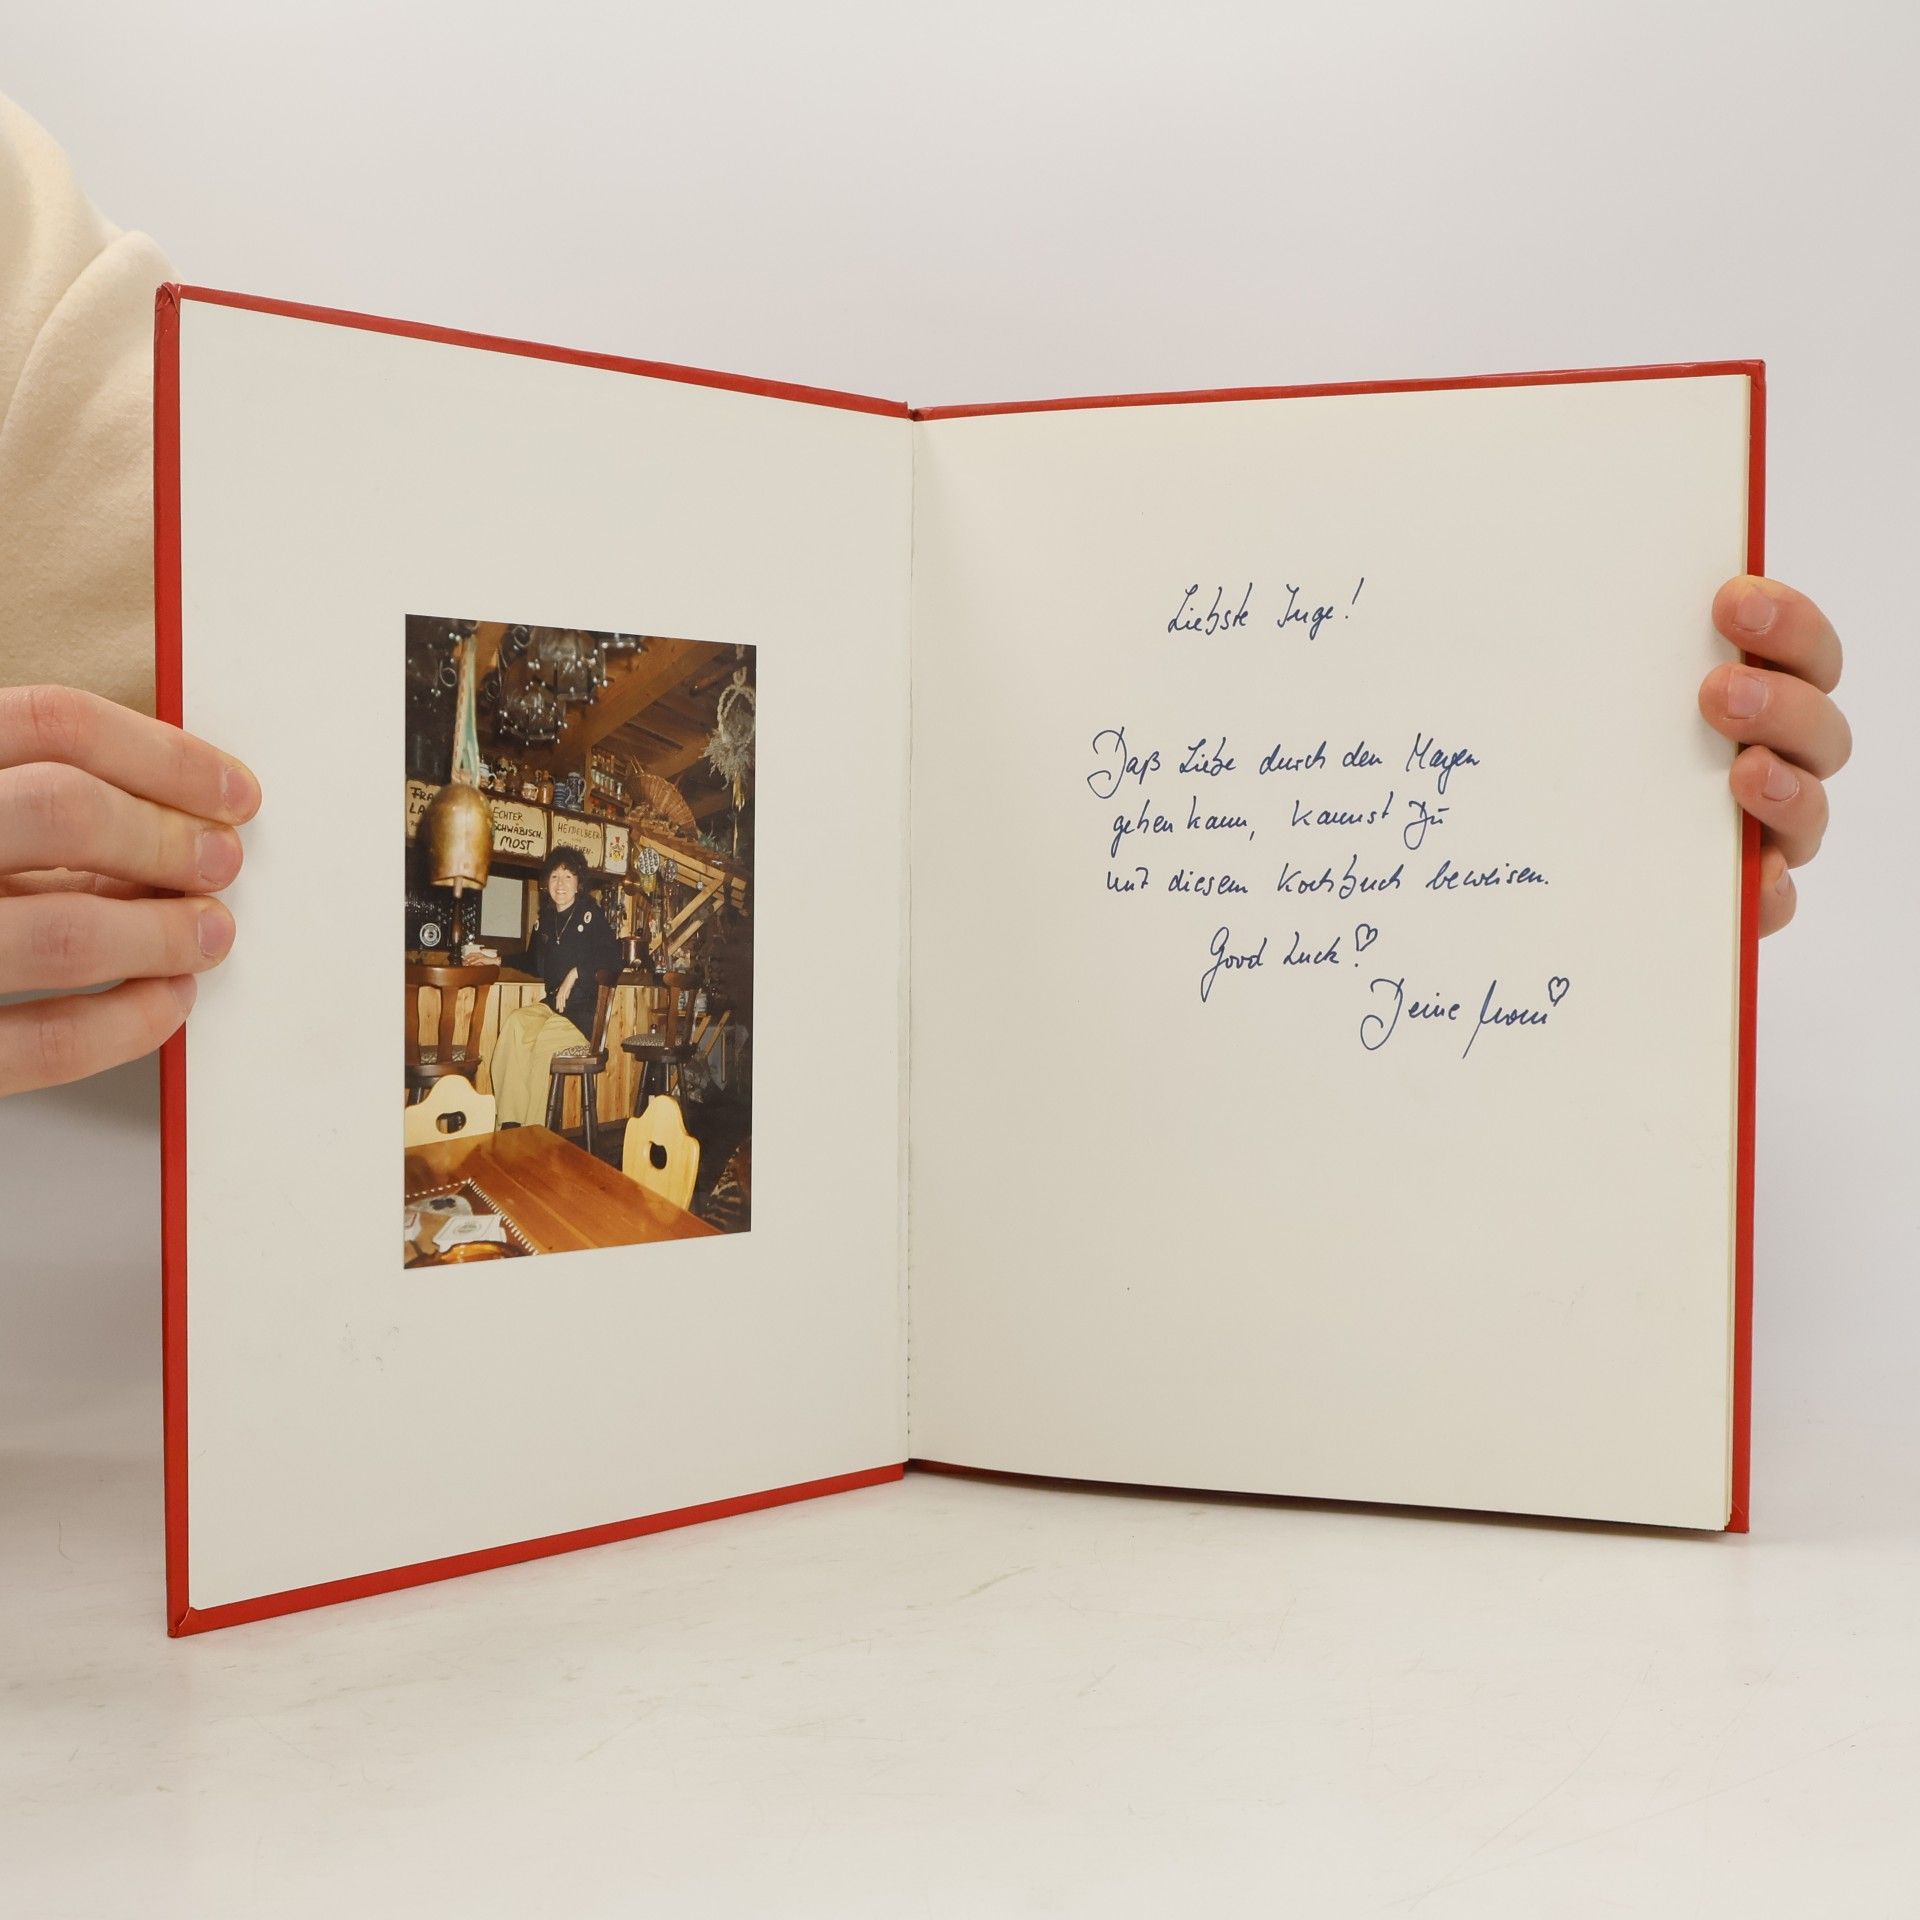 FRA
LA
ECHTER
SCHWÄBISCH.
MOST
HEIDELBEER
SCHLEHEN-
Liebste Inge!
Daß Liebe durch den Magen
gehen kann, kannst Du
mit diesem Kochbuch beweisen.
Good Luck!
Deine